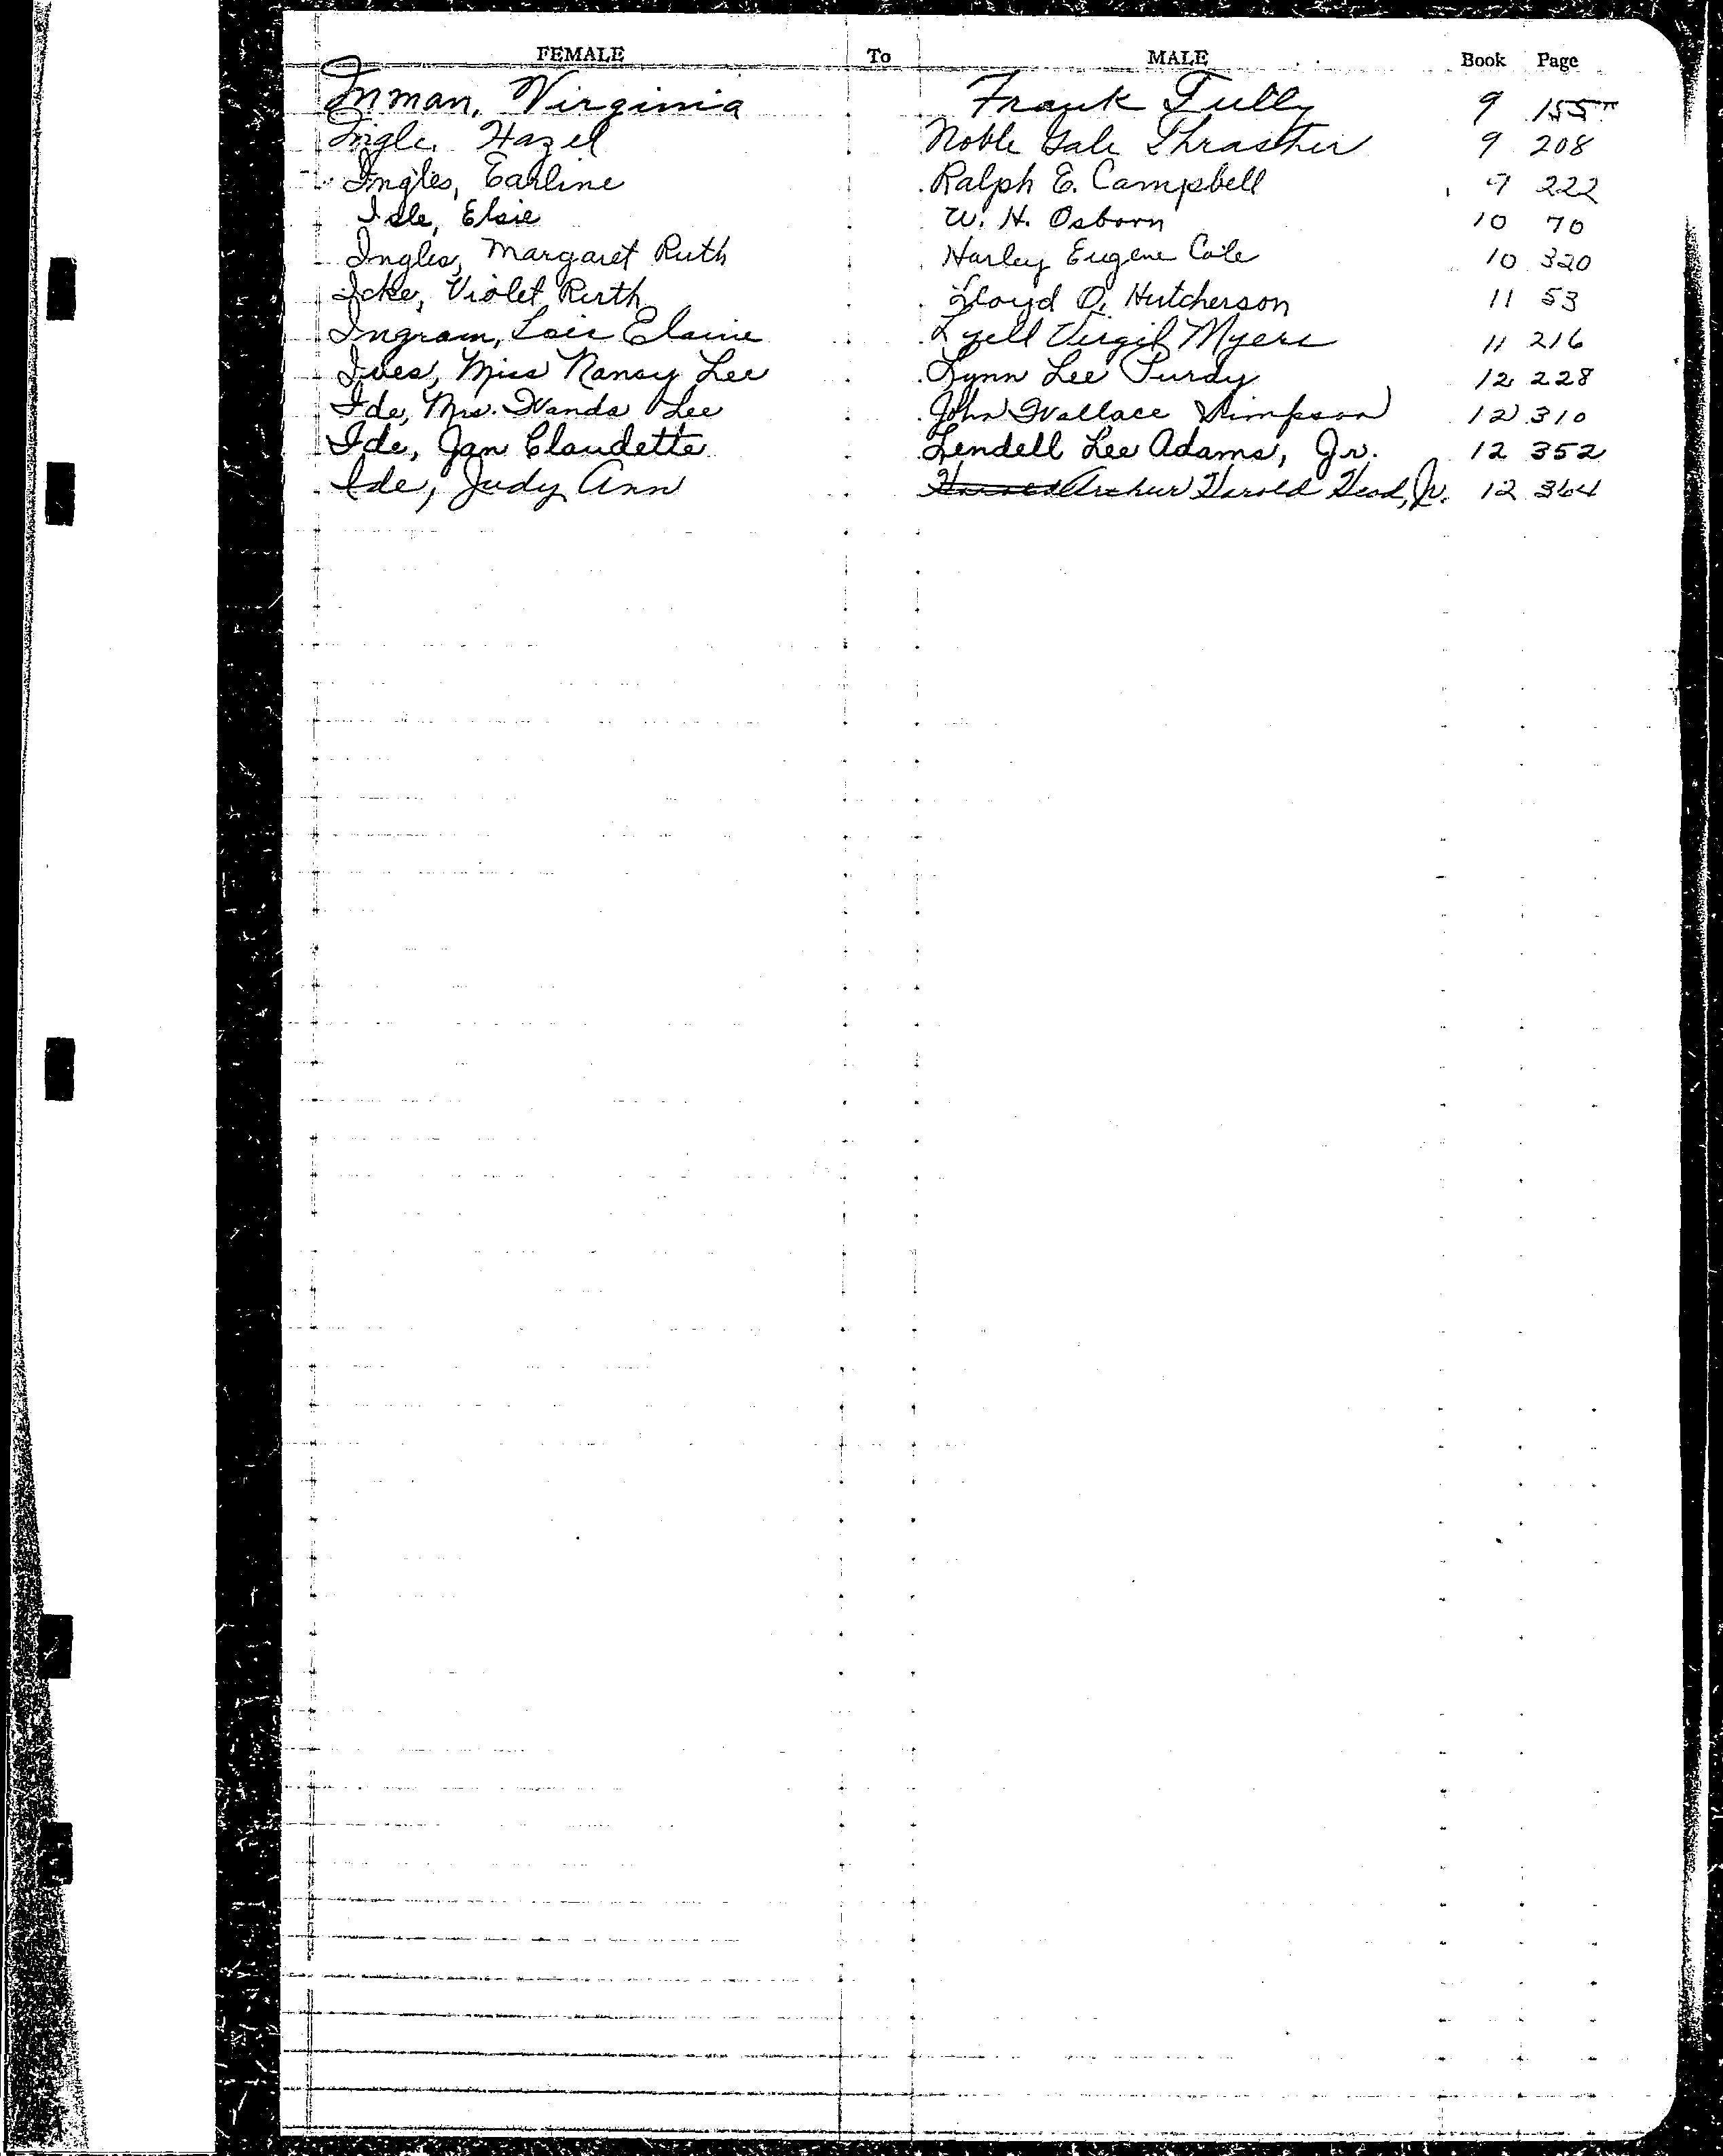 FEMALE To MALE Book Page
Inman, Virginia Frank Tully 9 155
Ingle, Hazel Noble Gale Thrasher 9 208
Ingles, Earline Ralph E. Campbell 9 222
Isle, Elsie W. H. Osborn 10 70
Ingles, Margaret Ruth Harley Eugene Cole 10 320
Icke, Violet Ruth Lloyd O. Hutcherson 11 53
Ingram, Lois Elaine Lyell Virgil Myers 11 216
Ives, Miss Nancy Lee Lynn Lee Purdy 12 228
Ide, Mrs. Wanda Lee John Wallace Simpson 12 310
Ide, Jan Claudette Lendell Lee Adams, Jr. 12 352
Ide, Judy Ann Arthur Harold Head, Jr. 12 364